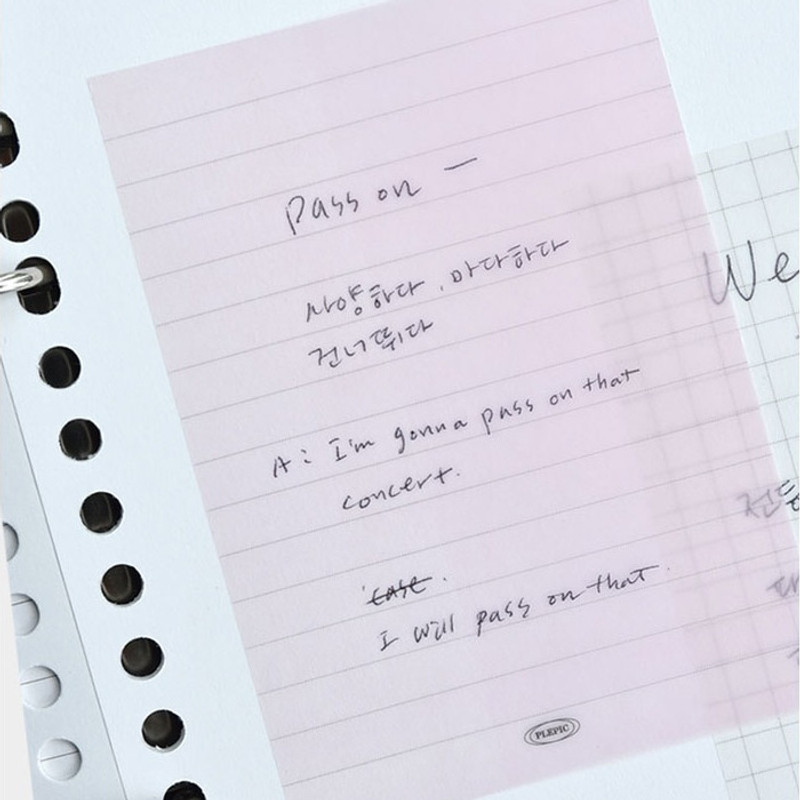 Pass on —
사양하다, 마다하다
건너뛰다
A: I'm gonna pass on that
concert.
case.
I will pass on that.
PLEPIC
We
전등